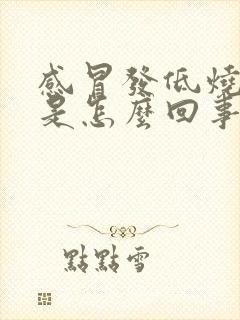 感冒發低燒
是怎麼回事
點點雪